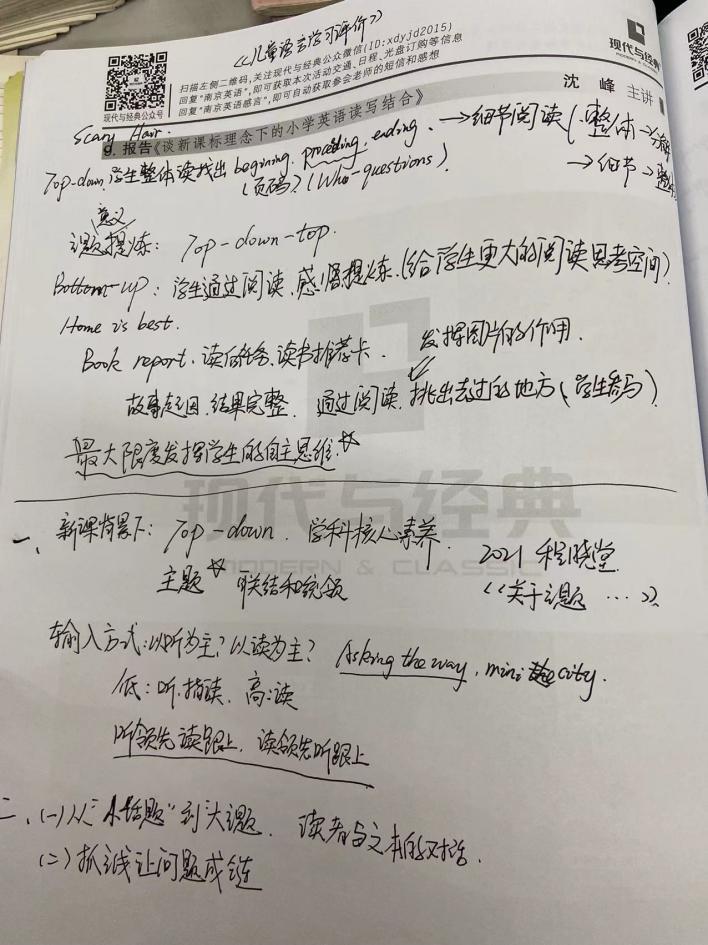 《儿童语言学习评价》
扫描左侧二维码,关注现代与经典公众微信(ID:xdyjd2015)
回复“南京英语”,即可获取本次活动交通、日程、光盘订购等信息
回复“南京英语感言”,即可自动获取参会老师的短信和感想
现代与经典公众号
现代与经典
MODERN & CLASSIC
沈 峰 主讲
Scary Hair.
9. 报告《谈新课标理念下的小学英语读写结合》
→细节阅读(整体→
→细节→整
Top-down.学生整体读找出 begining. proceeding. ending.
(页码)(Who-questions)
意义
课题提炼: Top-down-top.
Bottom-up: 学生通过阅读、感悟提炼.(给学生更大的阅读思考空间)
Home is best.
Book report. 读后任务、读书推荐卡. 发挥图片的作用.
故事起因、结果完整. 通过阅读、挑出去过的地方(学生参与)
最大限度发挥学生的自主思维.☆
现代与经典
MODERN & CLASSIC
一、新课背景下: Top-down. 学科核心素养.
主题☆ 联结和统领
2021 程晓堂
《关于主题 …》
输入方式:以听为主?以读为主? Asking the way, mini city.
低:听、指读. 高:读
听领先读跟上. 读领先听跟上
二、(一)从“小话题”到大主题. 读者与文本的对话.
(二)抓 让问题成链